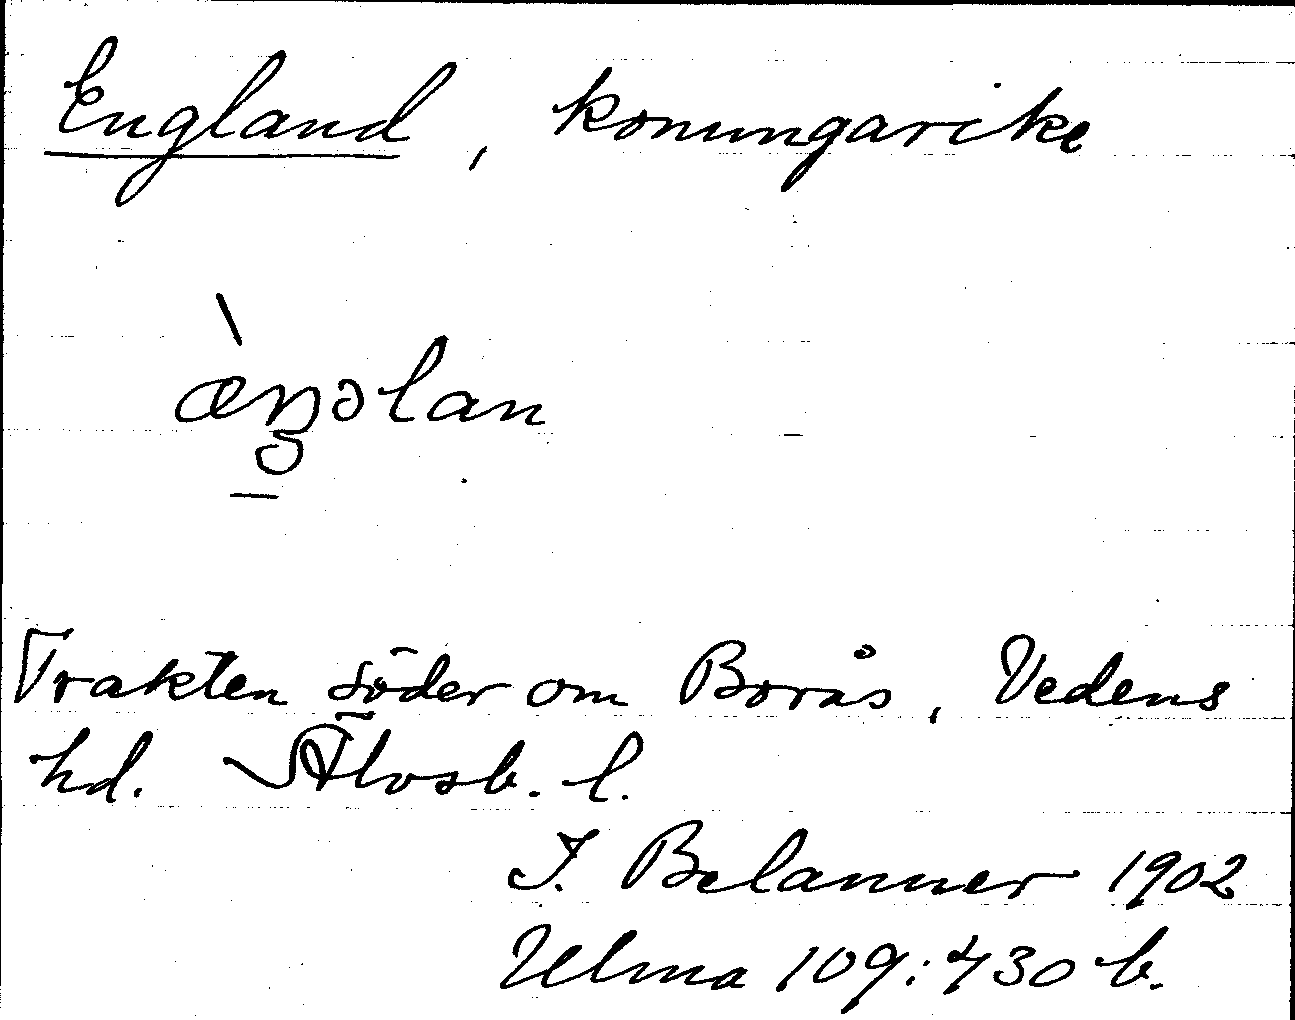 England, konungarike
æ̀ŋəlan
Trakten söder om Borås, Vedens
hd. Älvsb. l.
I. Belanner 1902
Ulma 109:430 b.